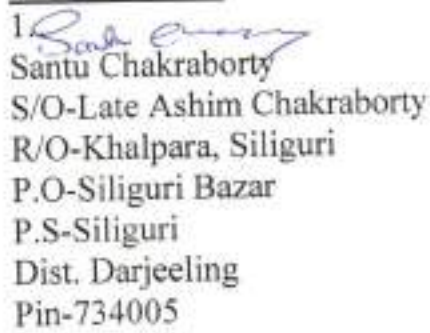 1.
Santu Chakraborty
S/O-Late Ashim Chakraborty
R/O-Khalpara, Siliguri
P.O-Siliguri Bazar
P.S-Siliguri
Dist. Darjeeling
Pin-734005